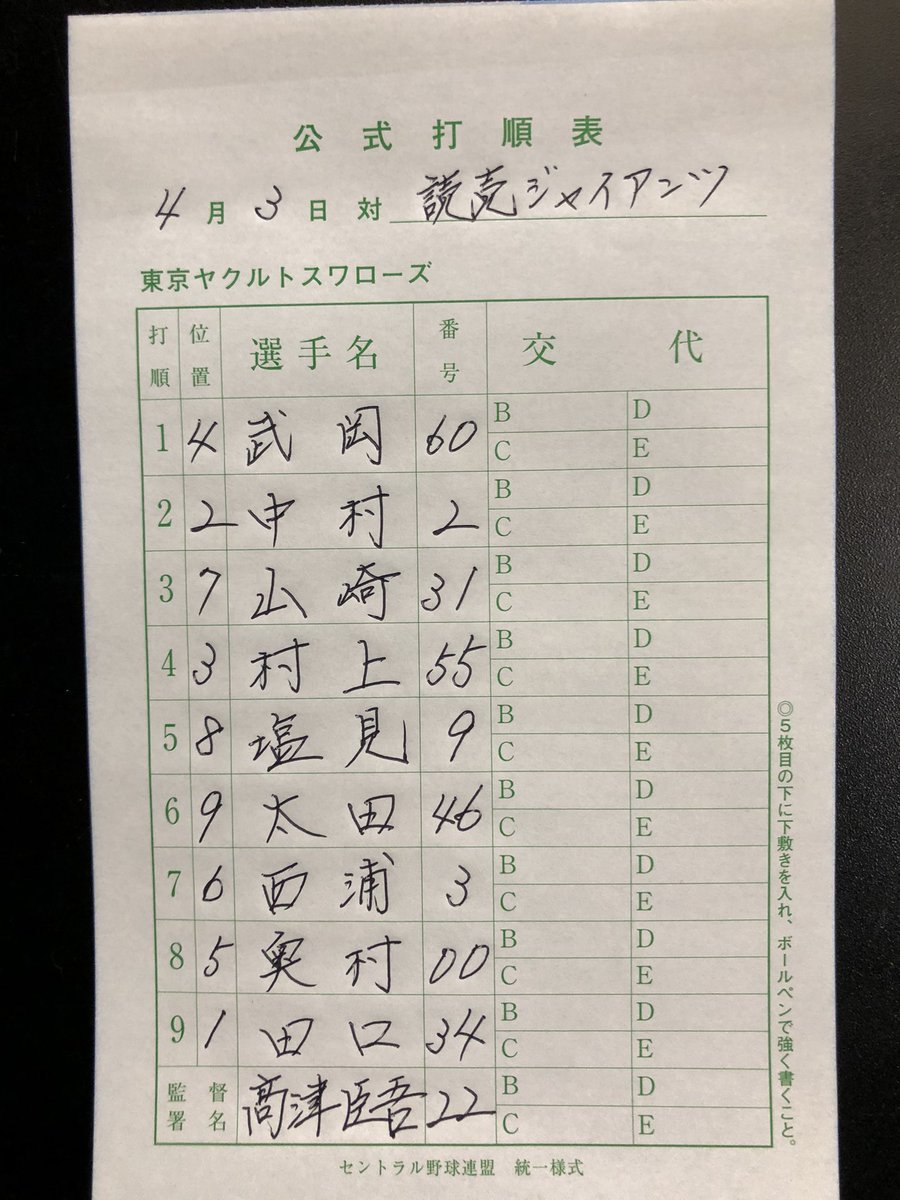 公式打順表
4月3日対 読売ジャイアンツ
東京ヤクルトスワローズ
打順 位置 選手名 番号 交代
1 4 武岡 60 B D C E
2 2 中村 2 B D C E
3 7 山崎 31 B D C E
4 3 村上 55 B D C E
5 8 塩見 9 B D C E
6 9 太田 46 B D C E
7 6 西浦 3 B D C E
8 5 奥村 00 B D C E
9 1 田口 34 B D C E
監督署名 髙津臣吾 22 B D C E
◎5枚目の下に下敷きを入れ、ボールペンで強く書くこと。
セントラル野球連盟 統一様式